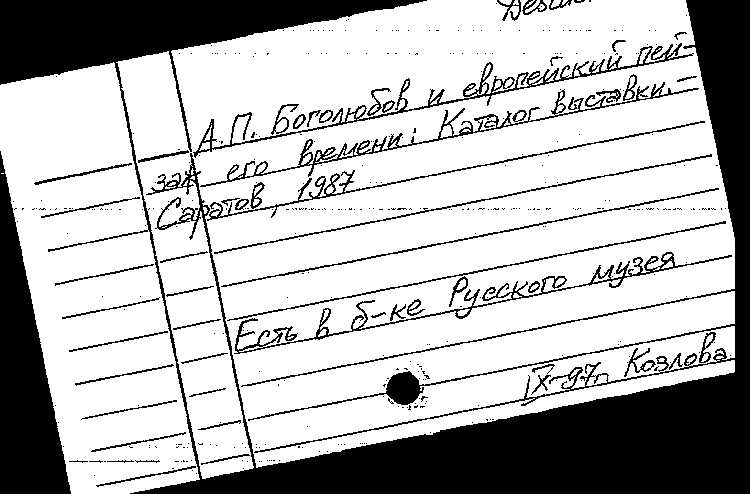 А.П. Боголюбов и европейский пей-
заж его времени: Каталог выставки.–
Саратов, 1987
Есть в б-ке Русского музея
IX-97г. Козлова